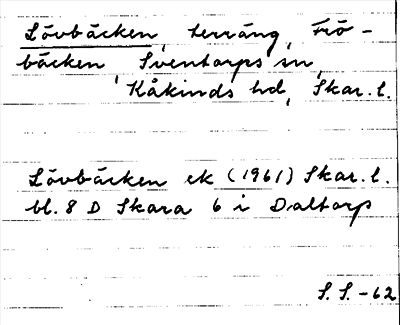 Lövbäcken, terräng, Frö-
bäcken, Sventorps sn,
Kåkinds hd, Skar. l.
Lövbäcken ek (1961) Skar. l.
bl. 8 D Skara 6 i Daltorp
S. S. -62